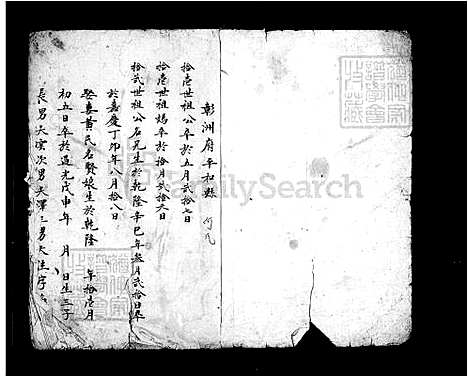 彰洲府平和縣 何氏
拾壹世祖公卒於五月貳拾七日
拾壹世祖媽卒於拾月貳拾六日
拾貳世祖公名 生於乾隆辛巳年叁月貳拾日卒
於嘉慶丁卯年八月拾八日
娶妻黃氏名賢娘生於乾隆 年拾壹月
初五日卒於道光戊申年 月 日生三子
長男大 次男大澤三男大 字
FamilySearch